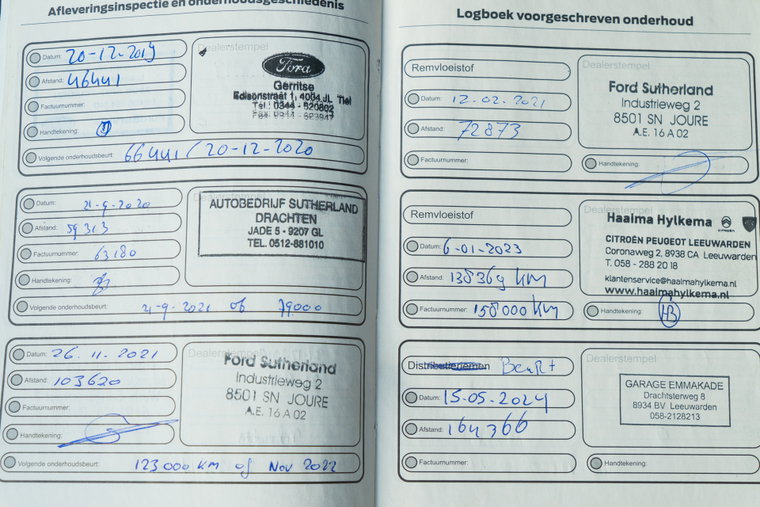 Afleveringsinspectie en onderhoudsgeschiedenis
Datum: 20-12-2019
Afstand: 46441
Factuurnummer:
Handtekening:
Volgende onderhoudsbeurt: 66441 / 20-12-2020
Dealerstempel
Ford
Gerritse
Edisonstraat 1, 4004 JL Tiel
Tel: 0344 - 620802
Datum: 21-9-2020
Afstand: 59313
Factuurnummer: 63180
Handtekening:
Volgende onderhoudsbeurt: 21-9-2021 of 79000
AUTOBEDRIJF SUTHERLAND
DRACHTEN
JADE 5 - 9207 GL
TEL. 0512-881010
Datum: 26.11.2021
Afstand: 103620
Factuurnummer:
Handtekening:
Volgende onderhoudsbeurt: 123000 KM of Nov 2022
Dealerstempel
Ford Sutherland
Industrieweg 2
8501 SN JOURE
A.E. 16 A 02
Logboek voorgeschreven onderhoud
Remvloeistof
Datum: 12-02-2021
Afstand: 72873
Factuurnummer:
Dealerstempel
Ford Sutherland
Industrieweg 2
8501 SN JOURE
A.E. 16 A 02
Handtekening:
Remvloeistof
Datum: 6-01-2023
Afstand: 138369 KM
Factuurnummer: 158000 KM
Haaima Hylkema
CITROËN
CITROËN PEUGEOT LEEUWARDEN
Coronaweg 2, 8938 CA Leeuwarden
T. 058 - 288 20 18
klantenservice@haaimahylkema.nl
www.haaimahylkema.nl
Handtekening:
Distributieriemen Beurt
Datum: 15-05-2024
Afstand: 164366
Factuurnummer:
Dealerstempel
GARAGE EMMAKADE
Drachtsterweg 8
8934 BV Leeuwarden
058-2128213
Handtekening: